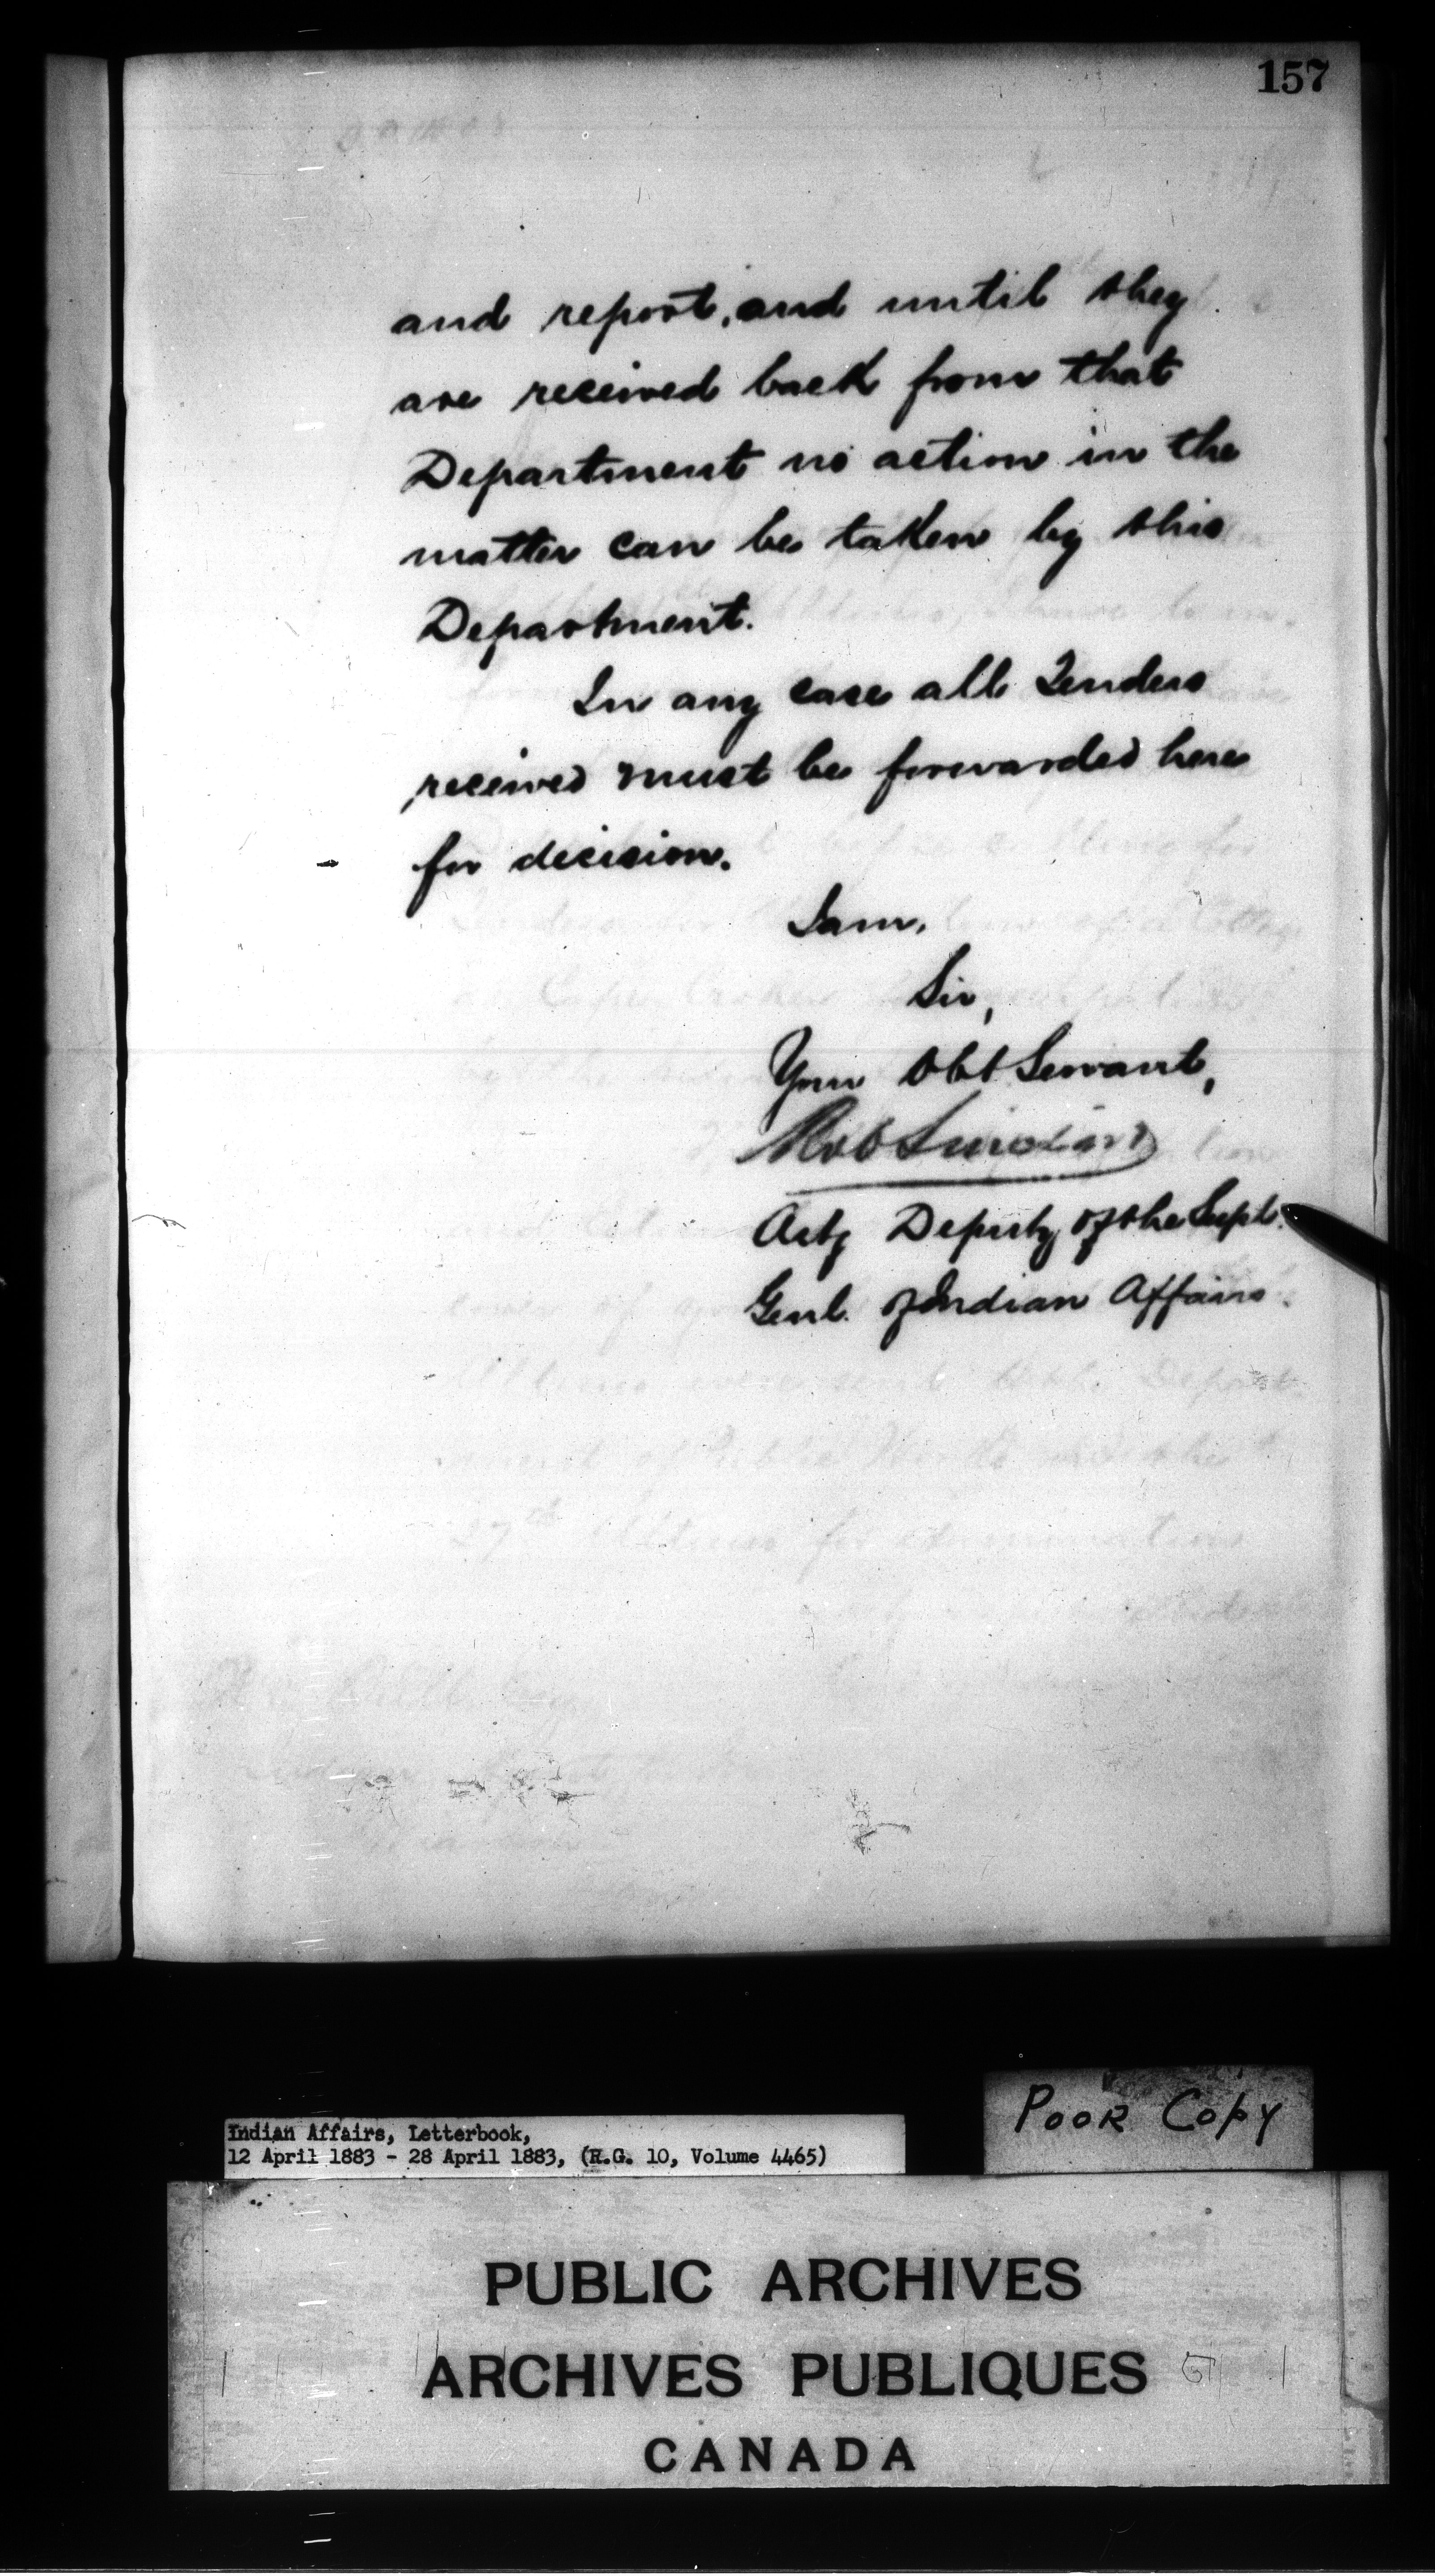 157
and report, and until they
are received back from that
Department no action in the
matter can be taken by this
Department.
In any case all Tenders
received must be forwarded here
for decision.
I am,
Sir,
Your Obt Servant,
Rob Sinclair
Actg Deputy of the Supt.
Genl. of Indian Affairs.
POOR COPY
Indian Affairs, Letterbook,
12 April 1883 - 28 April 1883, (R.G. 10, Volume 4465)
PUBLIC ARCHIVES
ARCHIVES PUBLIQUES
CANADA